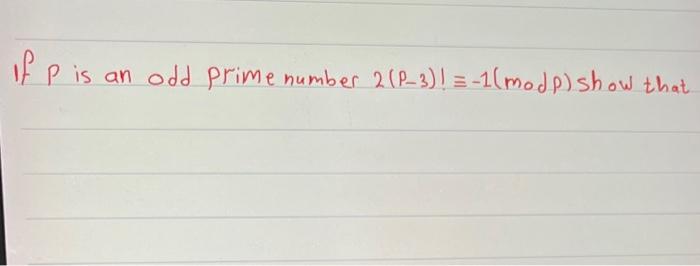 If p is an odd prime number 2(P-3)! ≡ -1(modp) show that